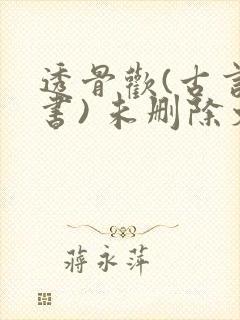 透骨歡(古言
書)未删除
蔣永萍